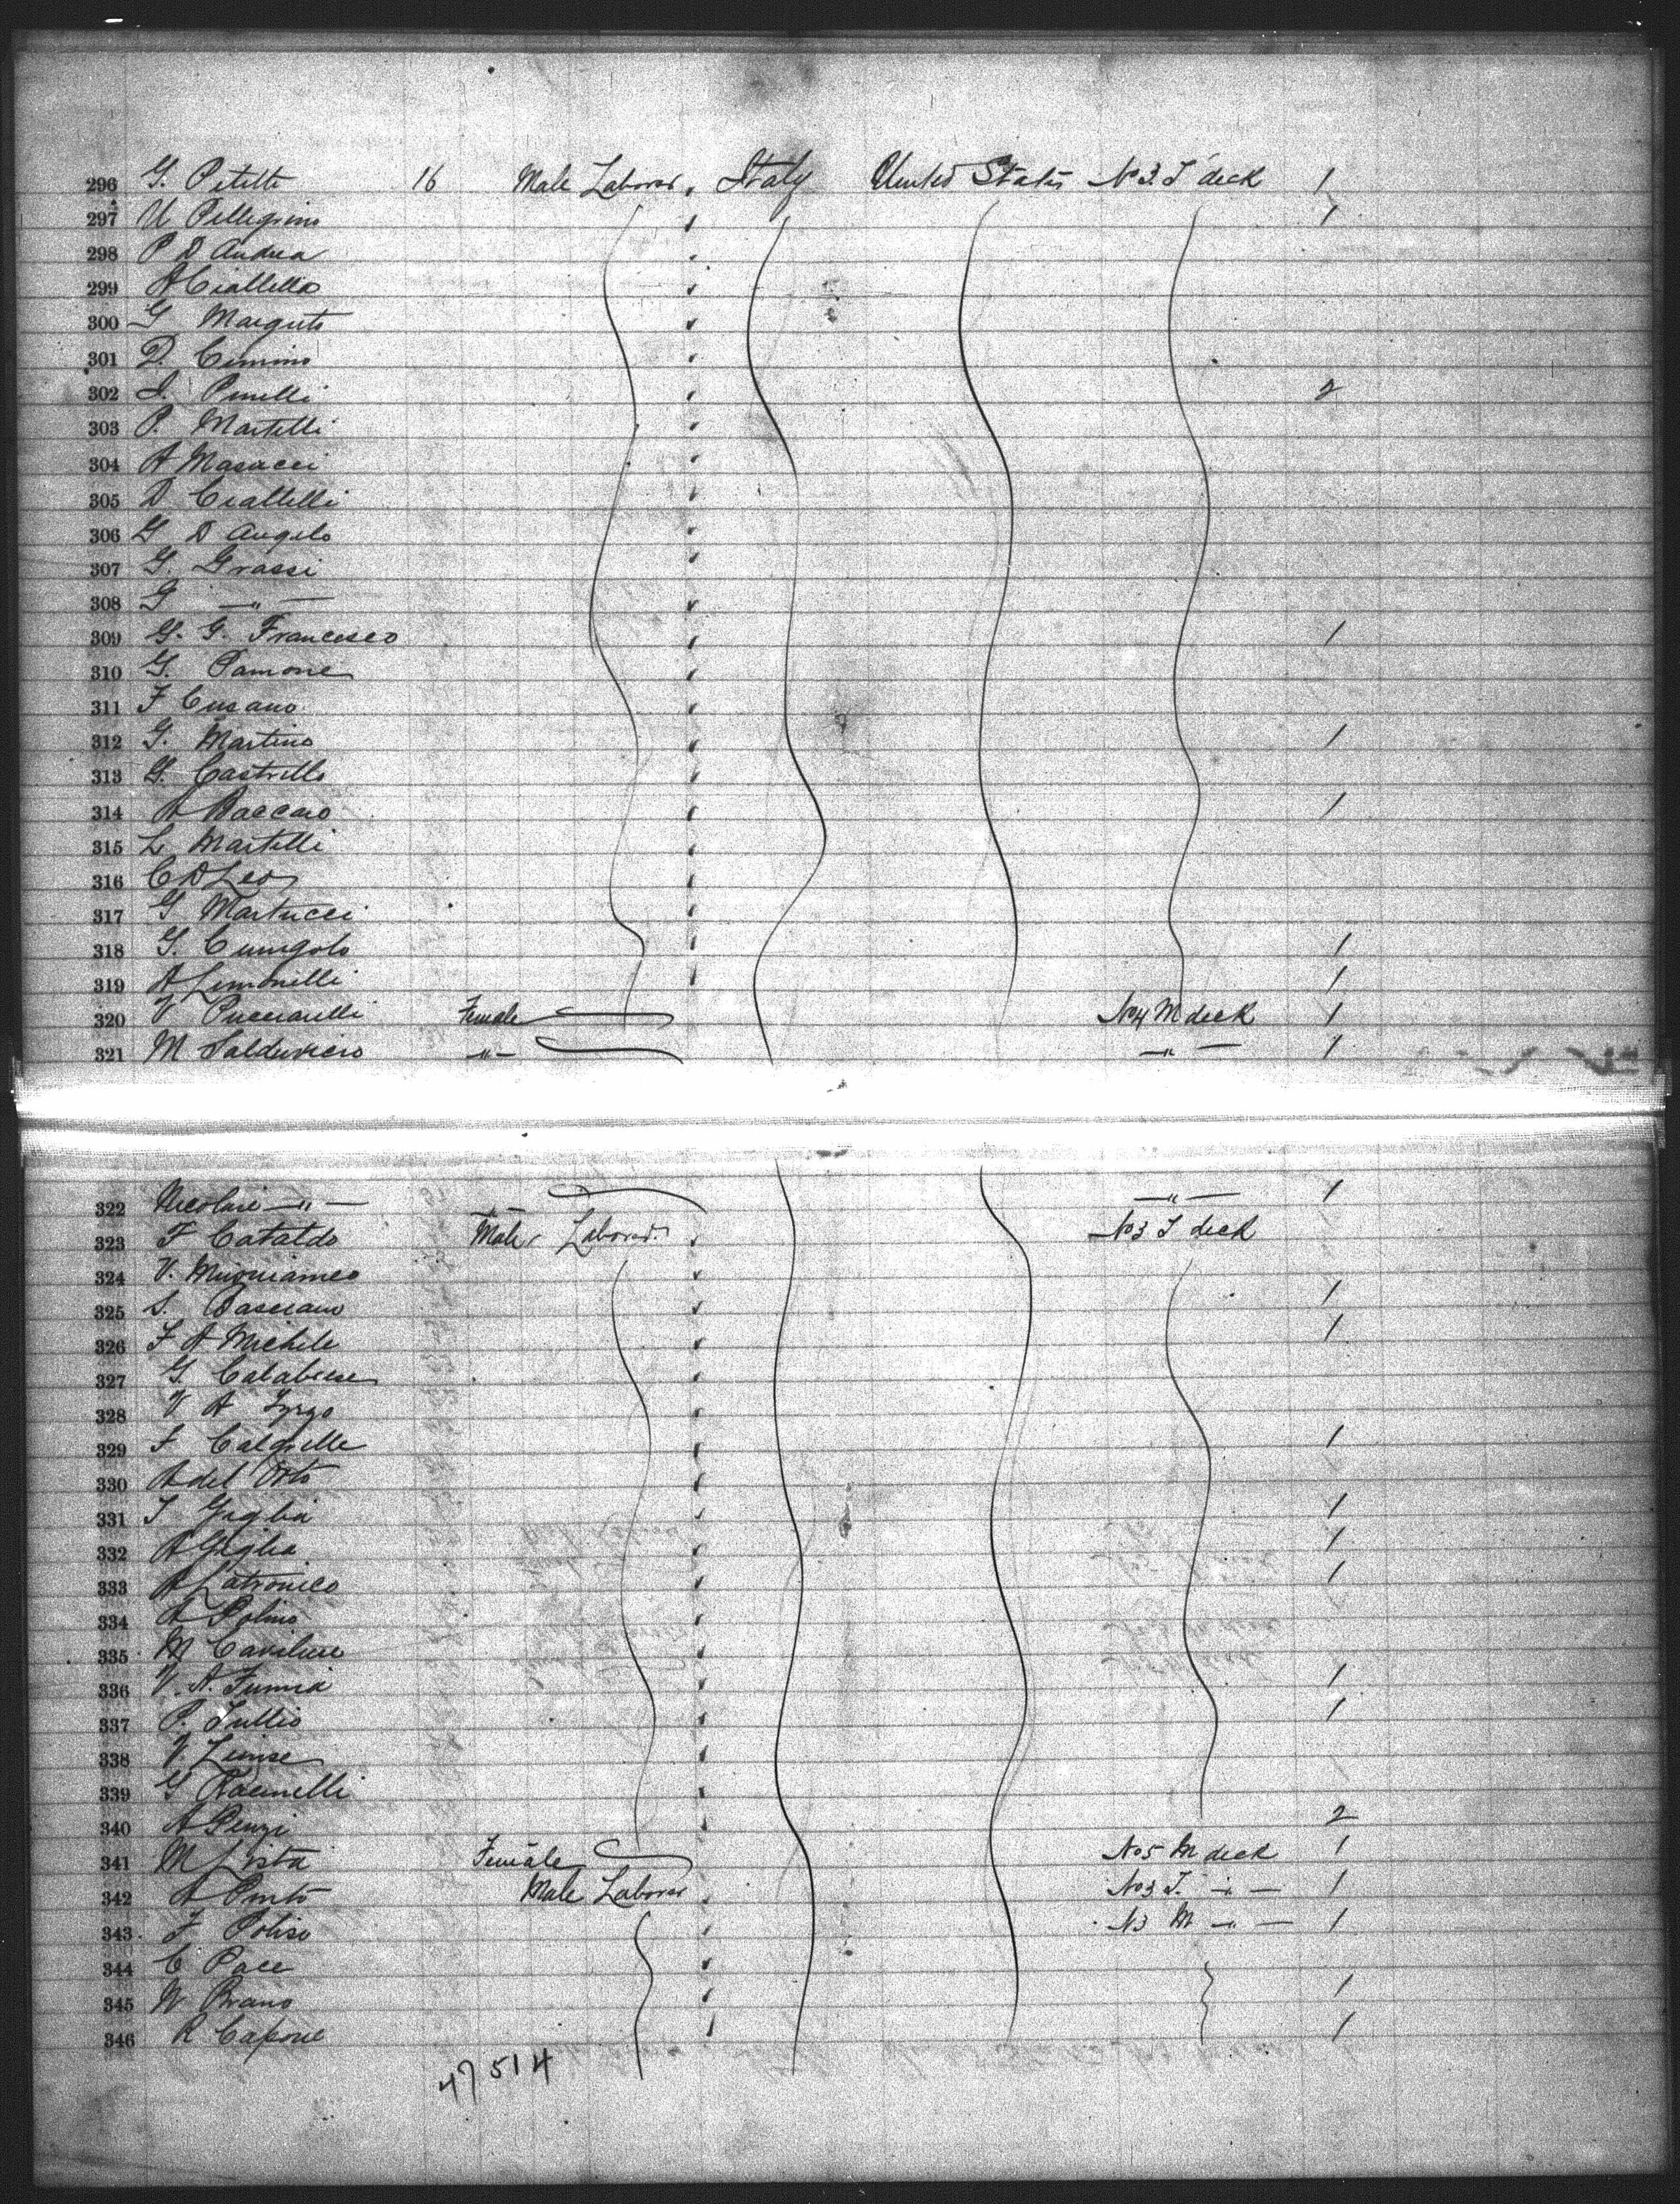 296 G. Petitti 16 Male Laborer Italy United States No 3. T deck 1
297 U Pellegrino 1
298 P D Andrea
299 A Ciallella
300 G
301 D. Cimino
302 I. Pinelli 2
303 P. Martelli
304 A Masucci
305 D. Ciallelli
306 G D Angelo
307 G. Grassi
308 G — " —
309 G. G. Francesco 1
310 G. Pamone
311 F Cusano
312 G. Martino 1
313 G. Castrillo
314 A Baccaro 1
315 L Martelli
316 C D Leo
317 G Martucci
318 G. 1
319 A Limonelli 1
320 V Pucciarelli Female No 4 M deck 1
321 M — " — — " — 1
322 — " — — " — — " — 1
323 F Cataldo Male Laborer No 3 T deck
324 V.
325 S. 1
326 F A Michele 1
327 G. Calabrese
328 V A
329 F 1
330 A del Orto
331 T Giglia 1
332 A Giglia 1
333 A Latronico 1
334 A Polino
335 M
336 V. A. 1
337 P. Tullio 1
338 V.
339 G
340 A Penzi 2
341 M Lista Female No 5 M deck 1
342 A Pinto Male Laborer No 3 T. — " — 1
343 F Poliso No 3 M — " — 1
344 C Pace
345 N Brano 1
346 R Capone 1
47514